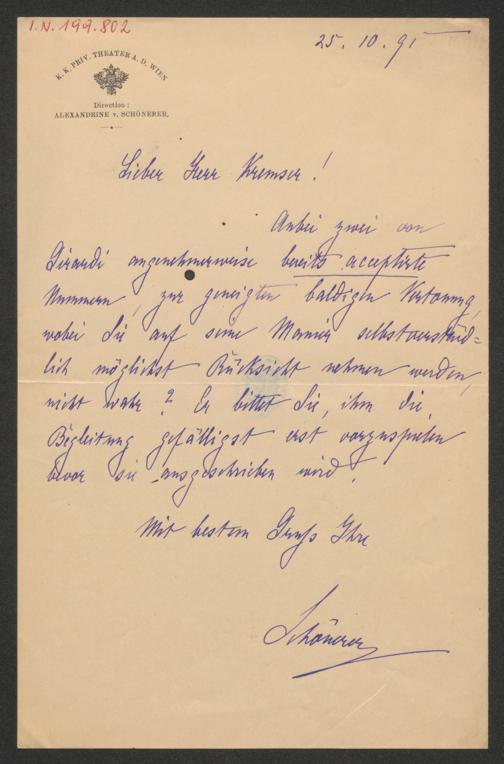 I.N. 199.802
25. 10. 95
K. K. PRIV. THEATER A. D. WIEN
Direction:
ALEXANDRINE v. SCHÖNERER.
Lieber Herr Kremser!
Anbei zwei von
Girardi angenehmerweise bereits acceptirte
Nummern, zur geneigten baldigen Vertonung,
wobei Sie auf seine Manier selbstverständ=
lich möglichst Rücksicht nehmen werden,
nicht wahr? Er bittet Sie, ihm die
Begleitung gefälligst erst vorzuspielen
bevor sie ausgeschrieben wird.
Mit bestem Gruß Ihre
Schönerer